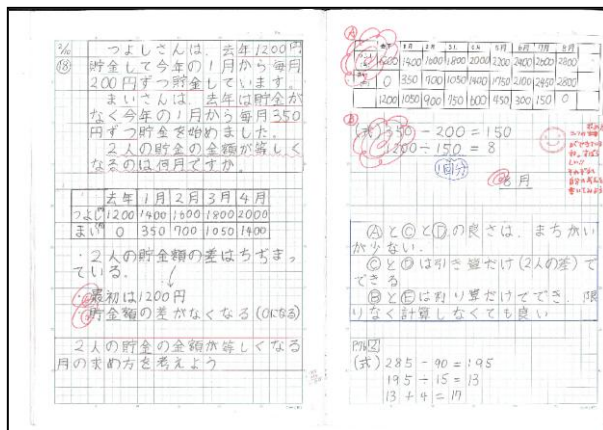 2/10
⑱
つよしさんは、去年1200円
貯金して今年の1月から毎月
200円ずつ貯金しています。
まいさんは、去年は貯金が
なく今年の1月から毎月350
円ずつ貯金を始めました。
2人の貯金の金額が等しく
なるのは何月ですか。
去年 1月 2月 3月 4月
つよし 1200 1400 1600 1800 2000
まい 0 350 700 1050 1400
・2人の貯金額の差はちぢまっ
ている。
最初は1200円
貯金額の差がなくなる(0になる)
2人の貯金の金額が等しくなる
月の求め方を考えよう
Ⓐ
去年 1月 2月 3月 4月 5月 6月 7月 8月
1200 1400 1600 1800 2000 2200 2400 2600 2800
0 350 700 1050 1400 1750 2100 2450 2800
1200 1050 900 750 600 450 300 150 0
Ⓑ
(式) 350 - 200 = 150
1200 ÷ 150 = 8
8月
ⒶとⒸとⒹの良さは、まちがい
が少ない。
ⒸとⒹは引き算だけ(2人の差)で
できる
ⒷとⒺは割り算だけででき、限
りなく計算しなくても良い
(式) 285 - 90 = 195
195 ÷ 15 = 13
13 + 4 = 17